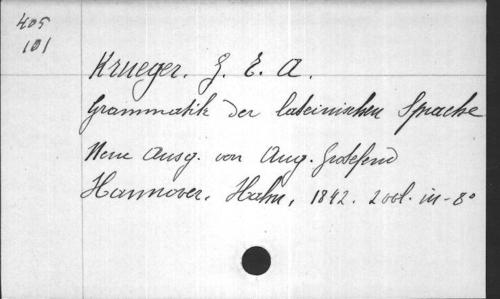 405
101
Krueger. G. E. A.
Grammatik der lateinischen Sprache
Neue Ausg. von Aug. Grotefend
Hannover. Hahn, 1842. 2 vol. in-8°